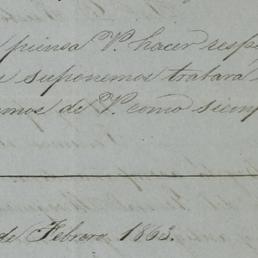 piensa V. hacer resp
suponemos tratará
mos de V. como siem
de Febrero, 1863.